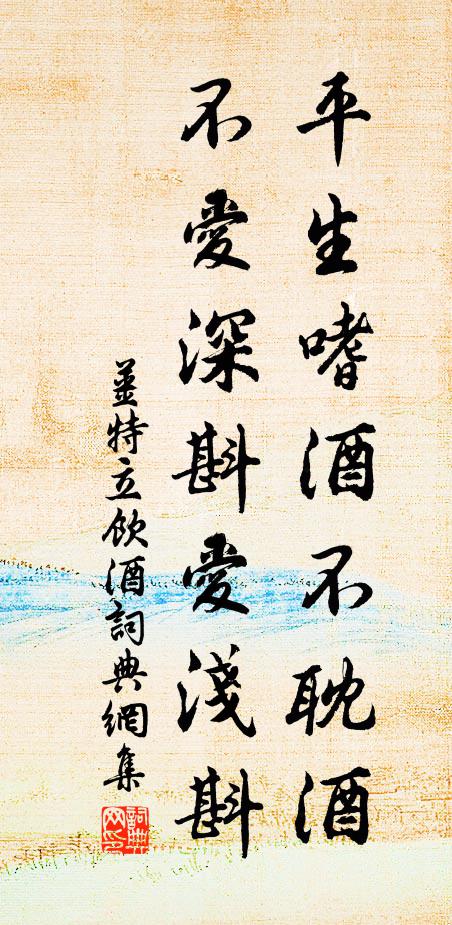 平生嗜酒不耽酒
不愛深斟愛淺斟
姜特立飲酒詞典網集
詞典网印